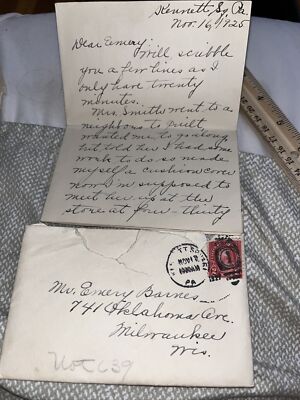 Kennett Sq Pa
Nov. 16, 1925
Dear Emery:
Will scribble
you a few lines as I
only have twenty
minutes.
Mrs. Smith went to a
neighbours to quilt
wanted me to go along
but told her I had some
work to do so made
myself a cushion cover
now I'm supposed to
meet her up at the
store at four-thirty
KENNETT SQUARE
NOV 17
PA
Mr. Emery Barnes
741 Oklahoma Ave.
Milwaukee
Wis.